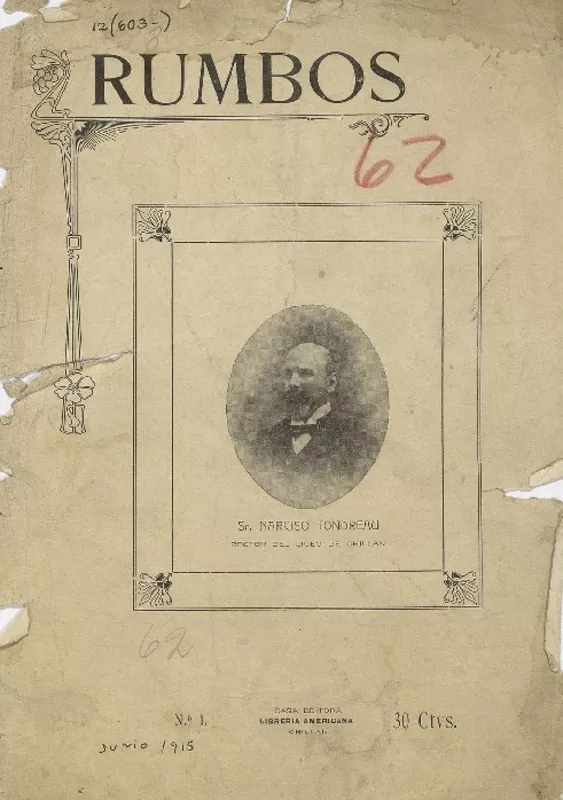 12(603-)
RUMBOS
62
Sr. NARCISO TONDREAU
RECTOR DEL LICEO DE CHILLAN
62
N.º 1.
CASA EDITORA
LIBRERIA AMERICANA
CHILLAN
30 Ctvs.
Junio 1915